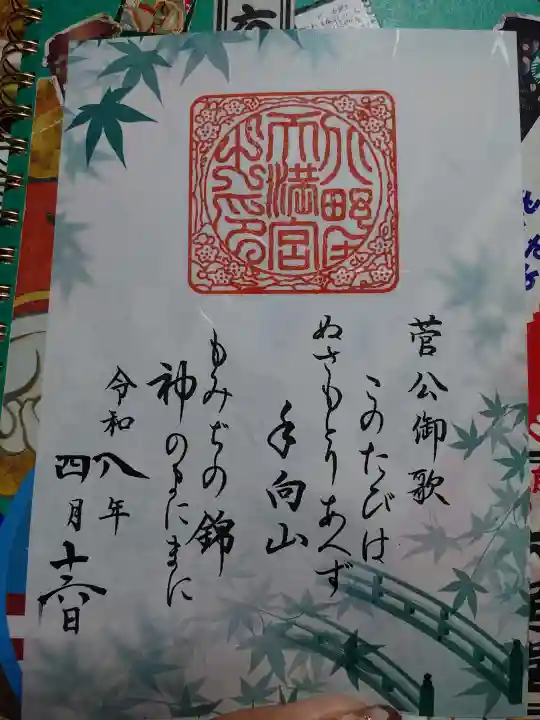 菅公御歌
このたびは
ぬさもとりあへず
手向山
もみぢの錦
神のまにまに
令和八年
四月十六日
天満宮